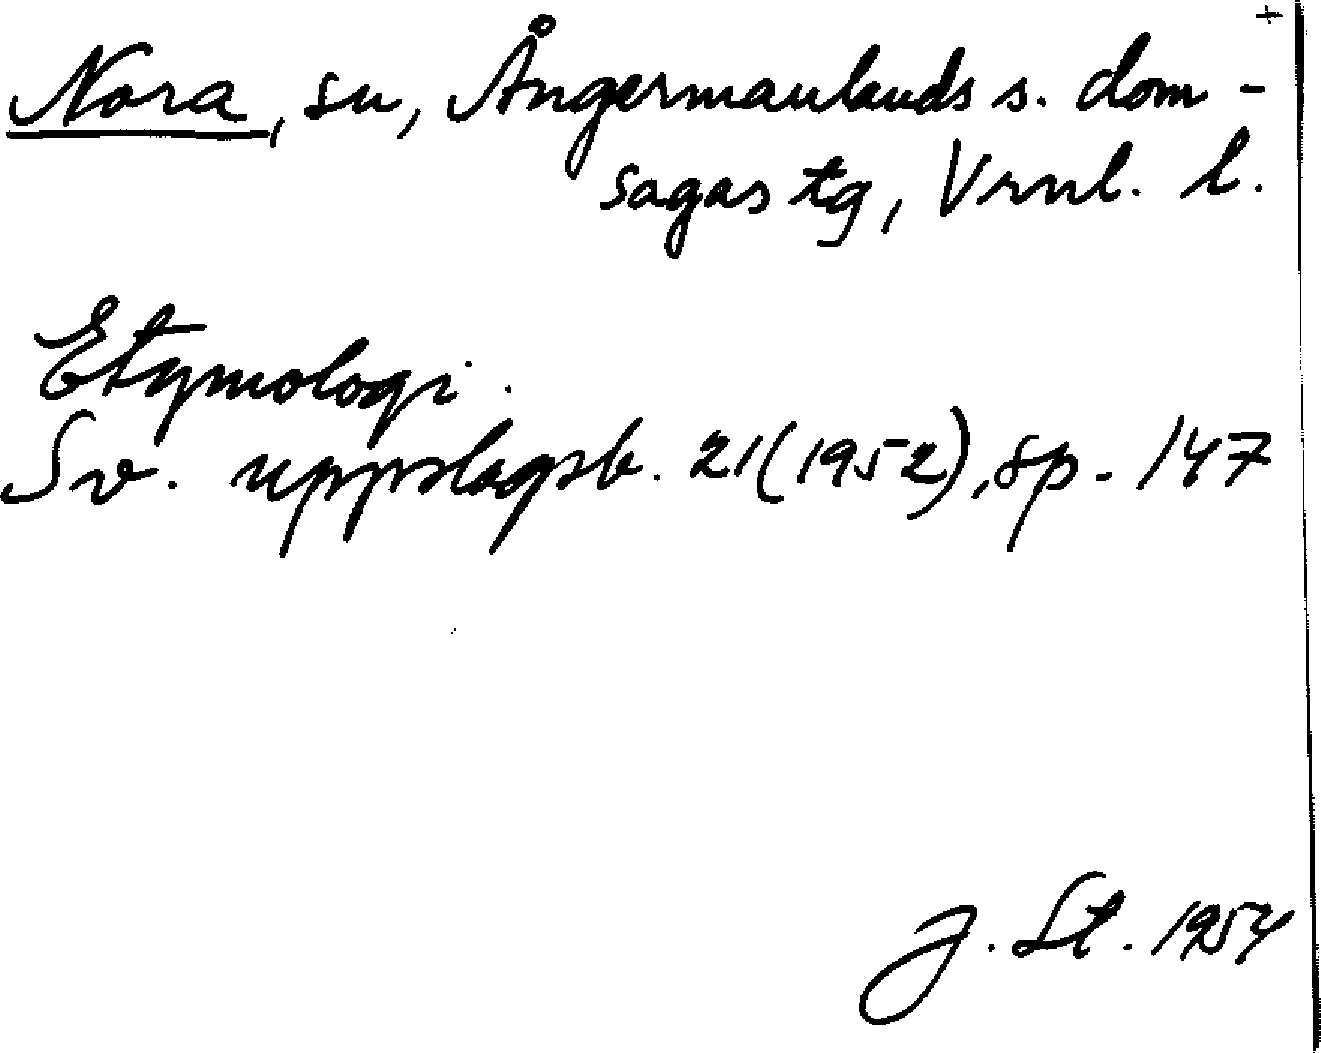 +
Nora, sn, Ångermanlands s. dom-
sagas tg, Vrnl. l.
Etymologi.
Sv. uppslagsb. 21(1952), sp. 147
J. St. 1954